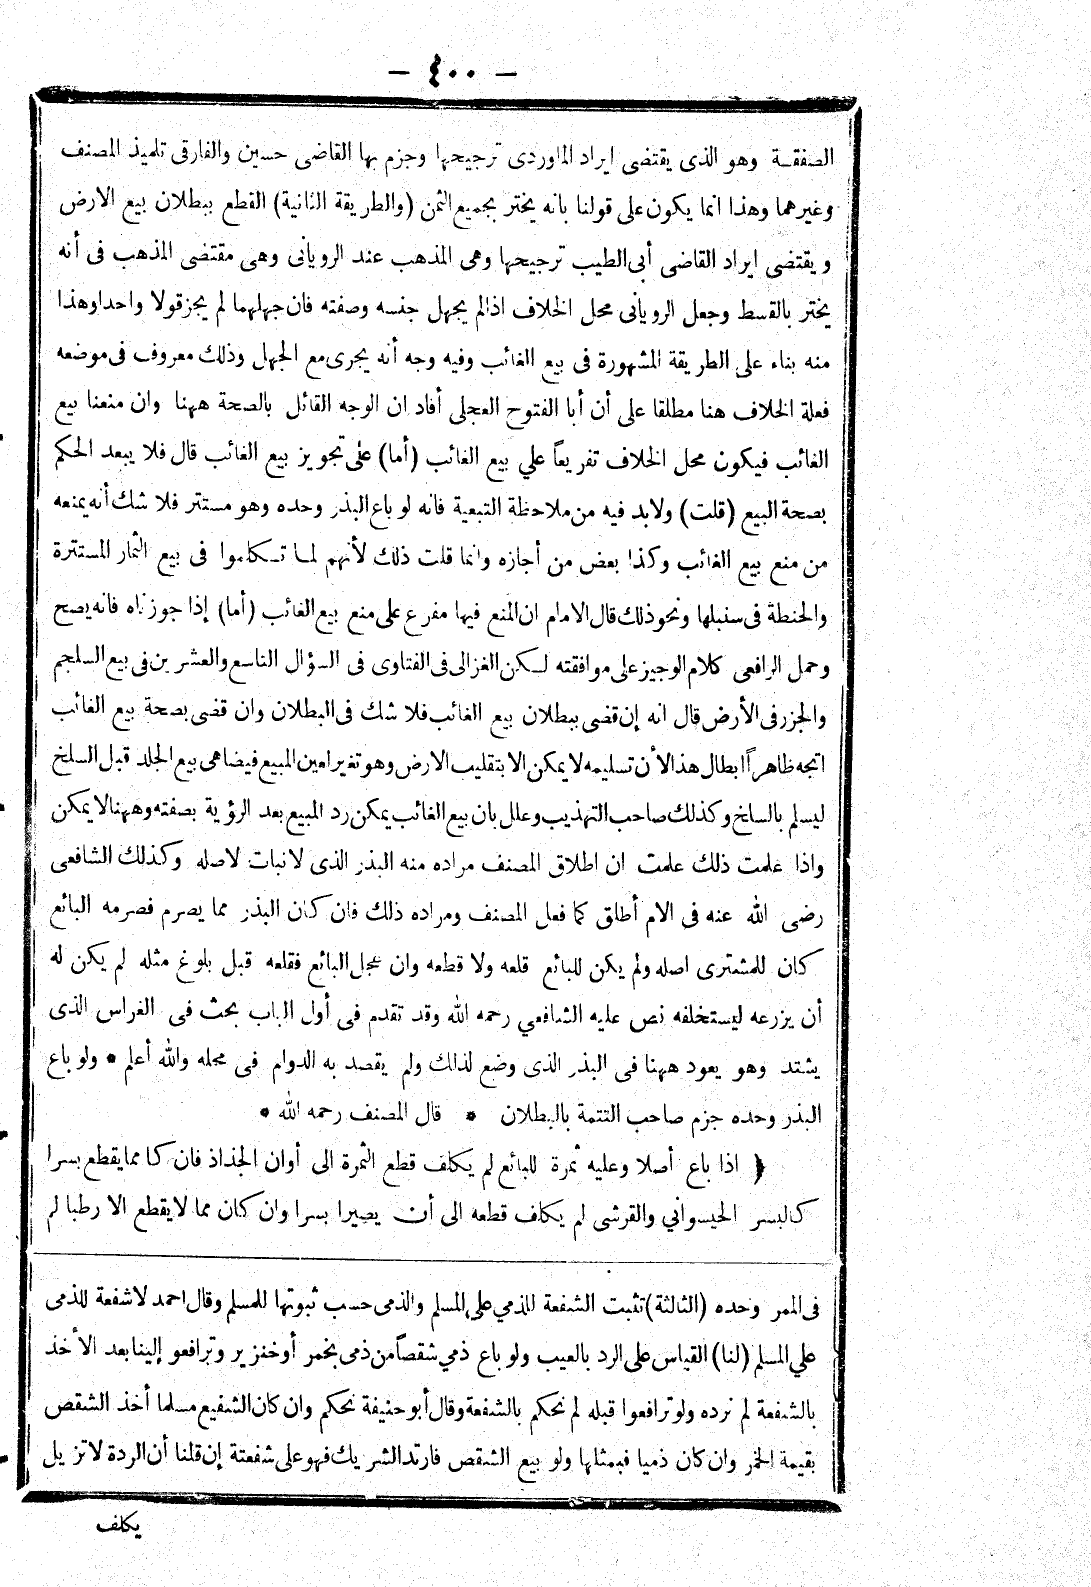 — ٤٠٠ —
الصفقــة وهو الذى يقتضى ايراد الماوردى ترجيحها وجزم بها القاضى حسين والفارقى تلميذ المصنف
وغيرهما وهذا انما يكون على قولنا بانه يختر بجميع الثمن (والطريقة الثانية) القطع ببطلان بيع الارض
ويقتضى ايراد القاضى أبى الطيب ترجيحها وهى المذهب عند الرويانى وهى مقتضى المذهب فى أنه
يختر بالقسط وجعل الرويانى محل الخلاف اذا لم يجهل جنسه وصفته فان جهلهما لم يجز قولا واحدا وهذا
منه بناء على الطريقة المشهورة فى بيع الغائب وفيه وجه أنه يجرى مع الجهل وذلك معروف فى موضعه
فعلة الخلاف هنا مطلقا على أن أبا الفتوح العجلى أفاد ان الوجه القائل بالصحة ههنا وان منعنا بيع
الغائب فيكون محل الخلاف تفريعاً علي بيع الغائب (أما) على تجويز بيع الغائب قال فلا يبعد الحكم
بصحة البيع (قلت) ولابد فيه من ملاحظة التبعية فانه لو باع البذر وحده وهو مستتر فلا شك أنه يمنعه
من منع بيع الغائب وكذا بعض من أجازه وانما قلت ذلك لأنهم لمـا تـكلموا فى بيع الثمار المستترة
والحنطة فى سنبلها ونحو ذلك قال الامام ان المنع فيها مفرع على منع بيع الغائب (أما) إذا جوزناه فانه يصح
وحمل الرافعى كلام الوجيز على موافقته لـكن الغزالى فى الفتاوى فى السؤال التاسع والعشرين فى بيع السلجم
والجزر فى الأرض قال انه إن قضى ببطلان بيع الغائب فلا شك فى البطلان وان قضى بصحة بيع الغائب
اتجه ظاهراً ابطال هذا لأن تسليمه لا يمكن الا بتقليب الارض وهو تغير لعين المبيع فيضاهى بيع الجلد قبل السلخ
ليسلم بالسلخ وكذلك صاحب التهذيب وعلل بان بيع الغائب يمكن رد المبيع بعد الرؤية بصفته وههنا لا يمكن
واذا علمت ذلك علمت ان اطلاق المصنف مراده منه البذر الذى لا نبات لاصله وكذلك الشافعى
رضى الله عنه فى الام أطلق كما فعل المصنف ومراده ذلك فان كان البذر مما يصرم فصرمه البائع
كان للمشترى اصله ولم يكن للبائع قلعه ولا قطعه وان عجل البائع فقلعه قبل بلوغ مثله لم يكن له
أن يزرعه ليستخلفه نص عليه الشافعي رحمه الله وقد تقدم فى أول الباب بحث فى الغراس الذى
يشتد وهو يعود ههنا فى البذر الذى وضع لذلك ولم يقصد به الدوام فى محله والله أعلم * ولو باع
البذر وحده جزم صاحب التتمة بالبطلان * قال المصنف رحمه الله *
﴿ اذا باع أصلا وعليه ثمرة للبائع لم يكلف قطع الثمرة الى أوان الجذاذ فان كا مما يقطع بسرا
كالبسر الحيسواني والقرشى لم يكلف قطعه الى أن يصيرا بسرا وان كان مما لا يقطع الا رطبا لم
فى الممر وحده (الثالثة) تثبت الشفعة للذمي على المسلم والذمى حسب ثبوتها للمسلم وقال احمد لا شفعة للذمى
علي المسلم (لنا) القياس على الرد بالعيب ولو باع ذمي شقصاً من ذمى بخمر أو خنزير وترافعو إلينا بعد الأخذ
بالشفعة لم نرده ولو ترافعوا قبله لم نحكم بالشفعة وقال أبو حنيفة نحكم وان كان الشفيع مسلما أخذ الشقص
بقيمة الخمر وان كان ذميا فبمثلها ولو بيع الشقص فارتد الشريك فهو على شفعتة إن قلنا أن الردة لا تزيل
يكلف